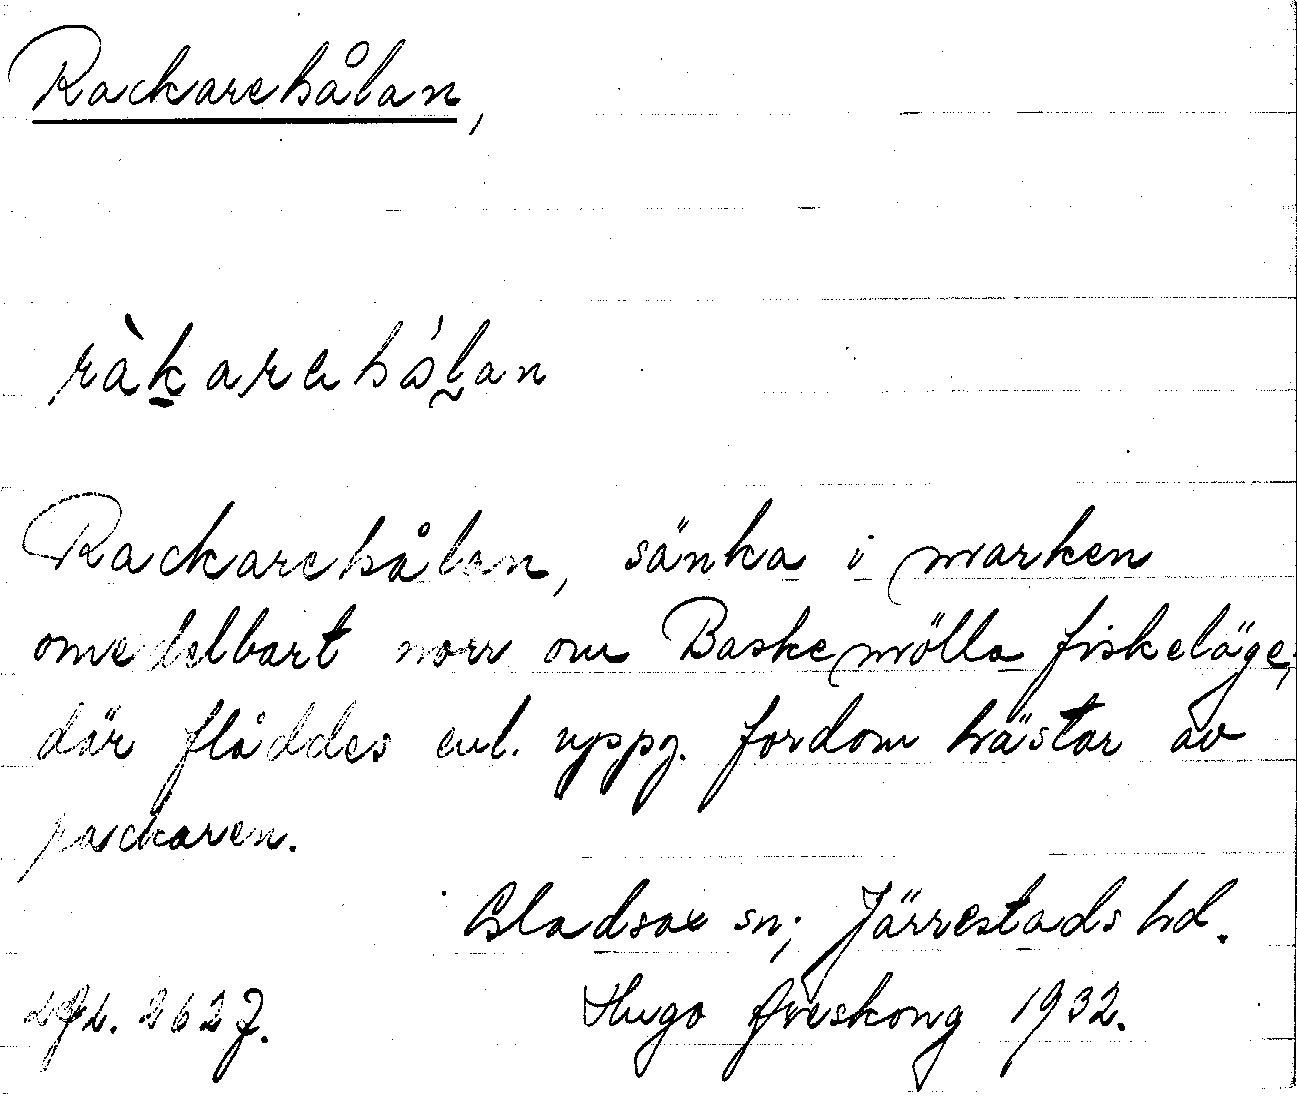 Rackarehålan,
ràkarehålan
Rackarehålan, sänka i marken
omedelbart norr om Baskemölla fiskeläge,
där flåddes enl. uppg. fordom hästar av
rackaren.
Gladsax sn; Järrestads hd.
Hugo Areskoug 1932.